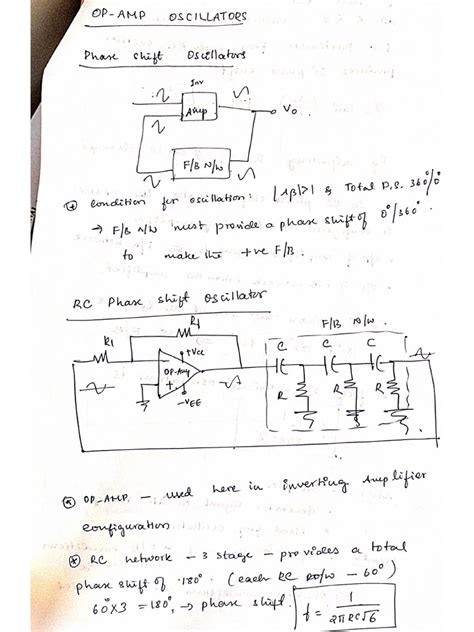 OP-AMP OSCILLATORS
Phase shift Oscillators
Inv
Amp
Vo
F/B N/W
condition for oscillation: |Aβ|>1 & Total P.S. 360°/0°
→ F/B N/W must provide a phase shift of 0°/360°
to make the +ve F/B.
RC Phase shift oscillator
Rf
F/B N/W.
R1
+Vcc
C C C
OP-Amp
R R R
-VEE
OP-AMP. - used here in inverting Amplifier
configuration
RC network - 3 stage - provides a total
phase shift of 180°. (each RC - 60°)
60°x3 = 180°, → phase shift.
f = 1/2πRC√6